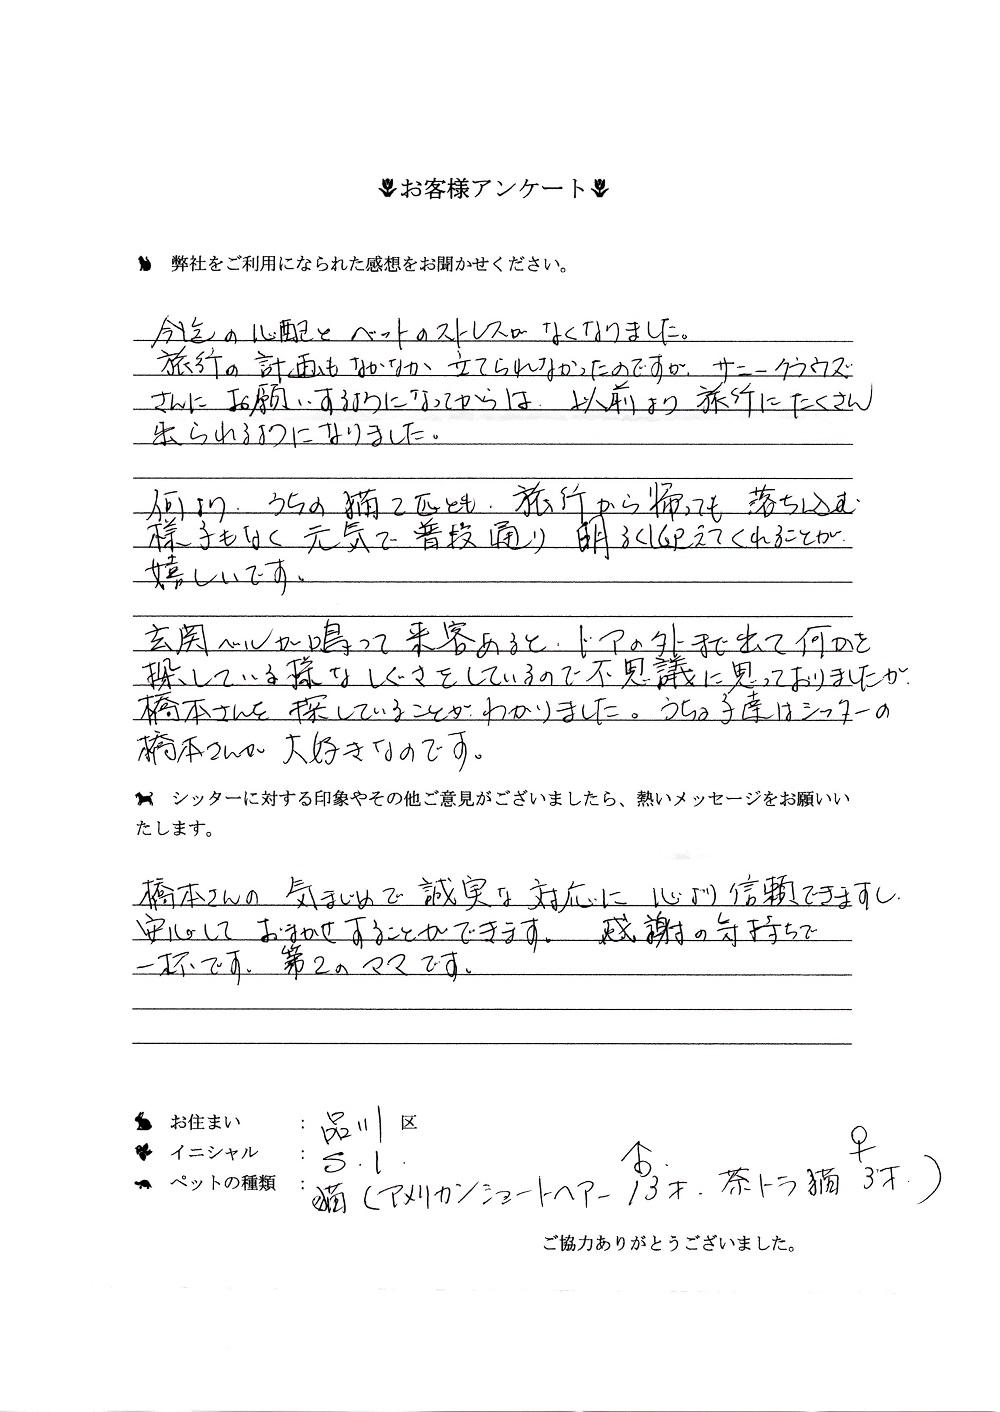 お客様アンケート
弊社をご利用になられた感想をお聞かせください。
今迄の心配とペットのストレスがなくなりました。
旅行の計画もなかなか立てられなかったのですが、サニークラウズ
さんにお願いするようになってからは、以前より旅行にたくさん
出られるようになりました。
何より、うちの猫2匹とも、旅行から帰っても落ち込む
様子もなく元気で普段通り明るく迎えてくれることが、
嬉しいです。
玄関ベルが鳴って来客あると、ドアの外まで出て何かを
探している様なしぐさをしているので不思議に思っておりましたが、
橋本さんを探していることがわかりました。うちの子達はシッターの
橋本さんが大好きなのです。
シッターに対する印象やその他ご意見がございましたら、熱いメッセージをお願いい
たします。
橋本さんの気まじめで誠実な対応に心より信頼できますし、
安心しておまかせすることができます。感謝の気持ちで
一杯です。第2のママです。
お住まい : 品川区
イニシャル : S.I.
ペットの種類 : 猫(アメリカンショートヘアー♂13才、茶トラ猫♀3才。)
ご協力ありがとうございました。